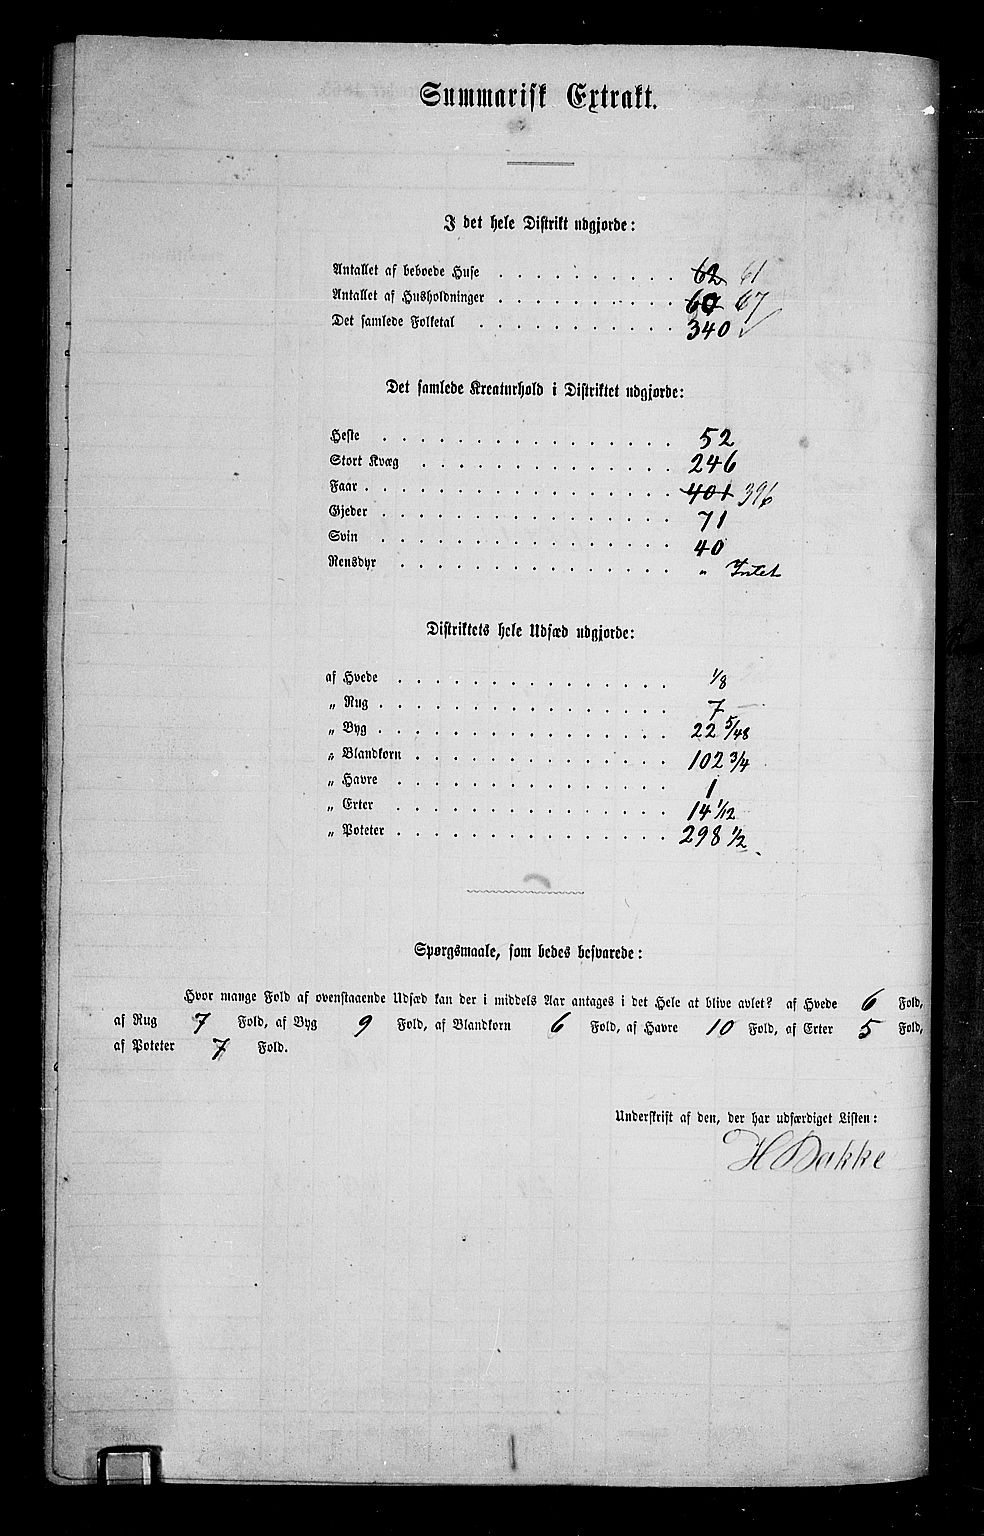 Summarisk Extrakt.
I det hele Distrikt udgjorde:
Antallet af beboede Huse . . . . . . . . . . 62 61
Antallet af Husholdninger . . . . . . . . . . 67
Det samlede Folketal . . . . . . . . . . . 340 ✓
Det samlede Kreaturhold i Distriktet udgjorde:
Heste . . . . . . . . . . . . . . . . 52
Stort Kvæg . . . . . . . . . . . . . . 246
Faar . . . . . . . . . . . . . . . . . 401 396
Gjeder . . . . . . . . . . . . . . . . 71
Svin . . . . . . . . . . . . . . . . 40
Rensdyr . . . . . . . . . . . . . . . " Intet
Distriktets hele Udsæd udgjorde:
af Hvede . . . . . . . . . . . . . . . 1/8
„ Rug . . . . . . . . . . . . . . . . 7
„ Byg . . . . . . . . . . . . . . . . 22 5/48
„ Blandkorn . . . . . . . . . . . . . . 102 3/4
„ Havre . . . . . . . . . . . . . . . 1
„ Erter . . . . . . . . . . . . . . . 14 1/12
„ Poteter . . . . . . . . . . . . . . . 298 1/2
Spørgsmaale, som bedes besvarede:
Hvor mange Fold af ovenstaaende Udsæd kan der i middels Aar antages i det Hele at blive avlet? af Hvede 6 Fold,
af Rug 7 Fold, af Byg 9 Fold, af Blandkorn 6 Fold, af Havre 10 Fold, af Erter 5 Fold,
af Poteter 7 Fold.
Underskrift af den, der har udfærdiget Listen:
H Bakke